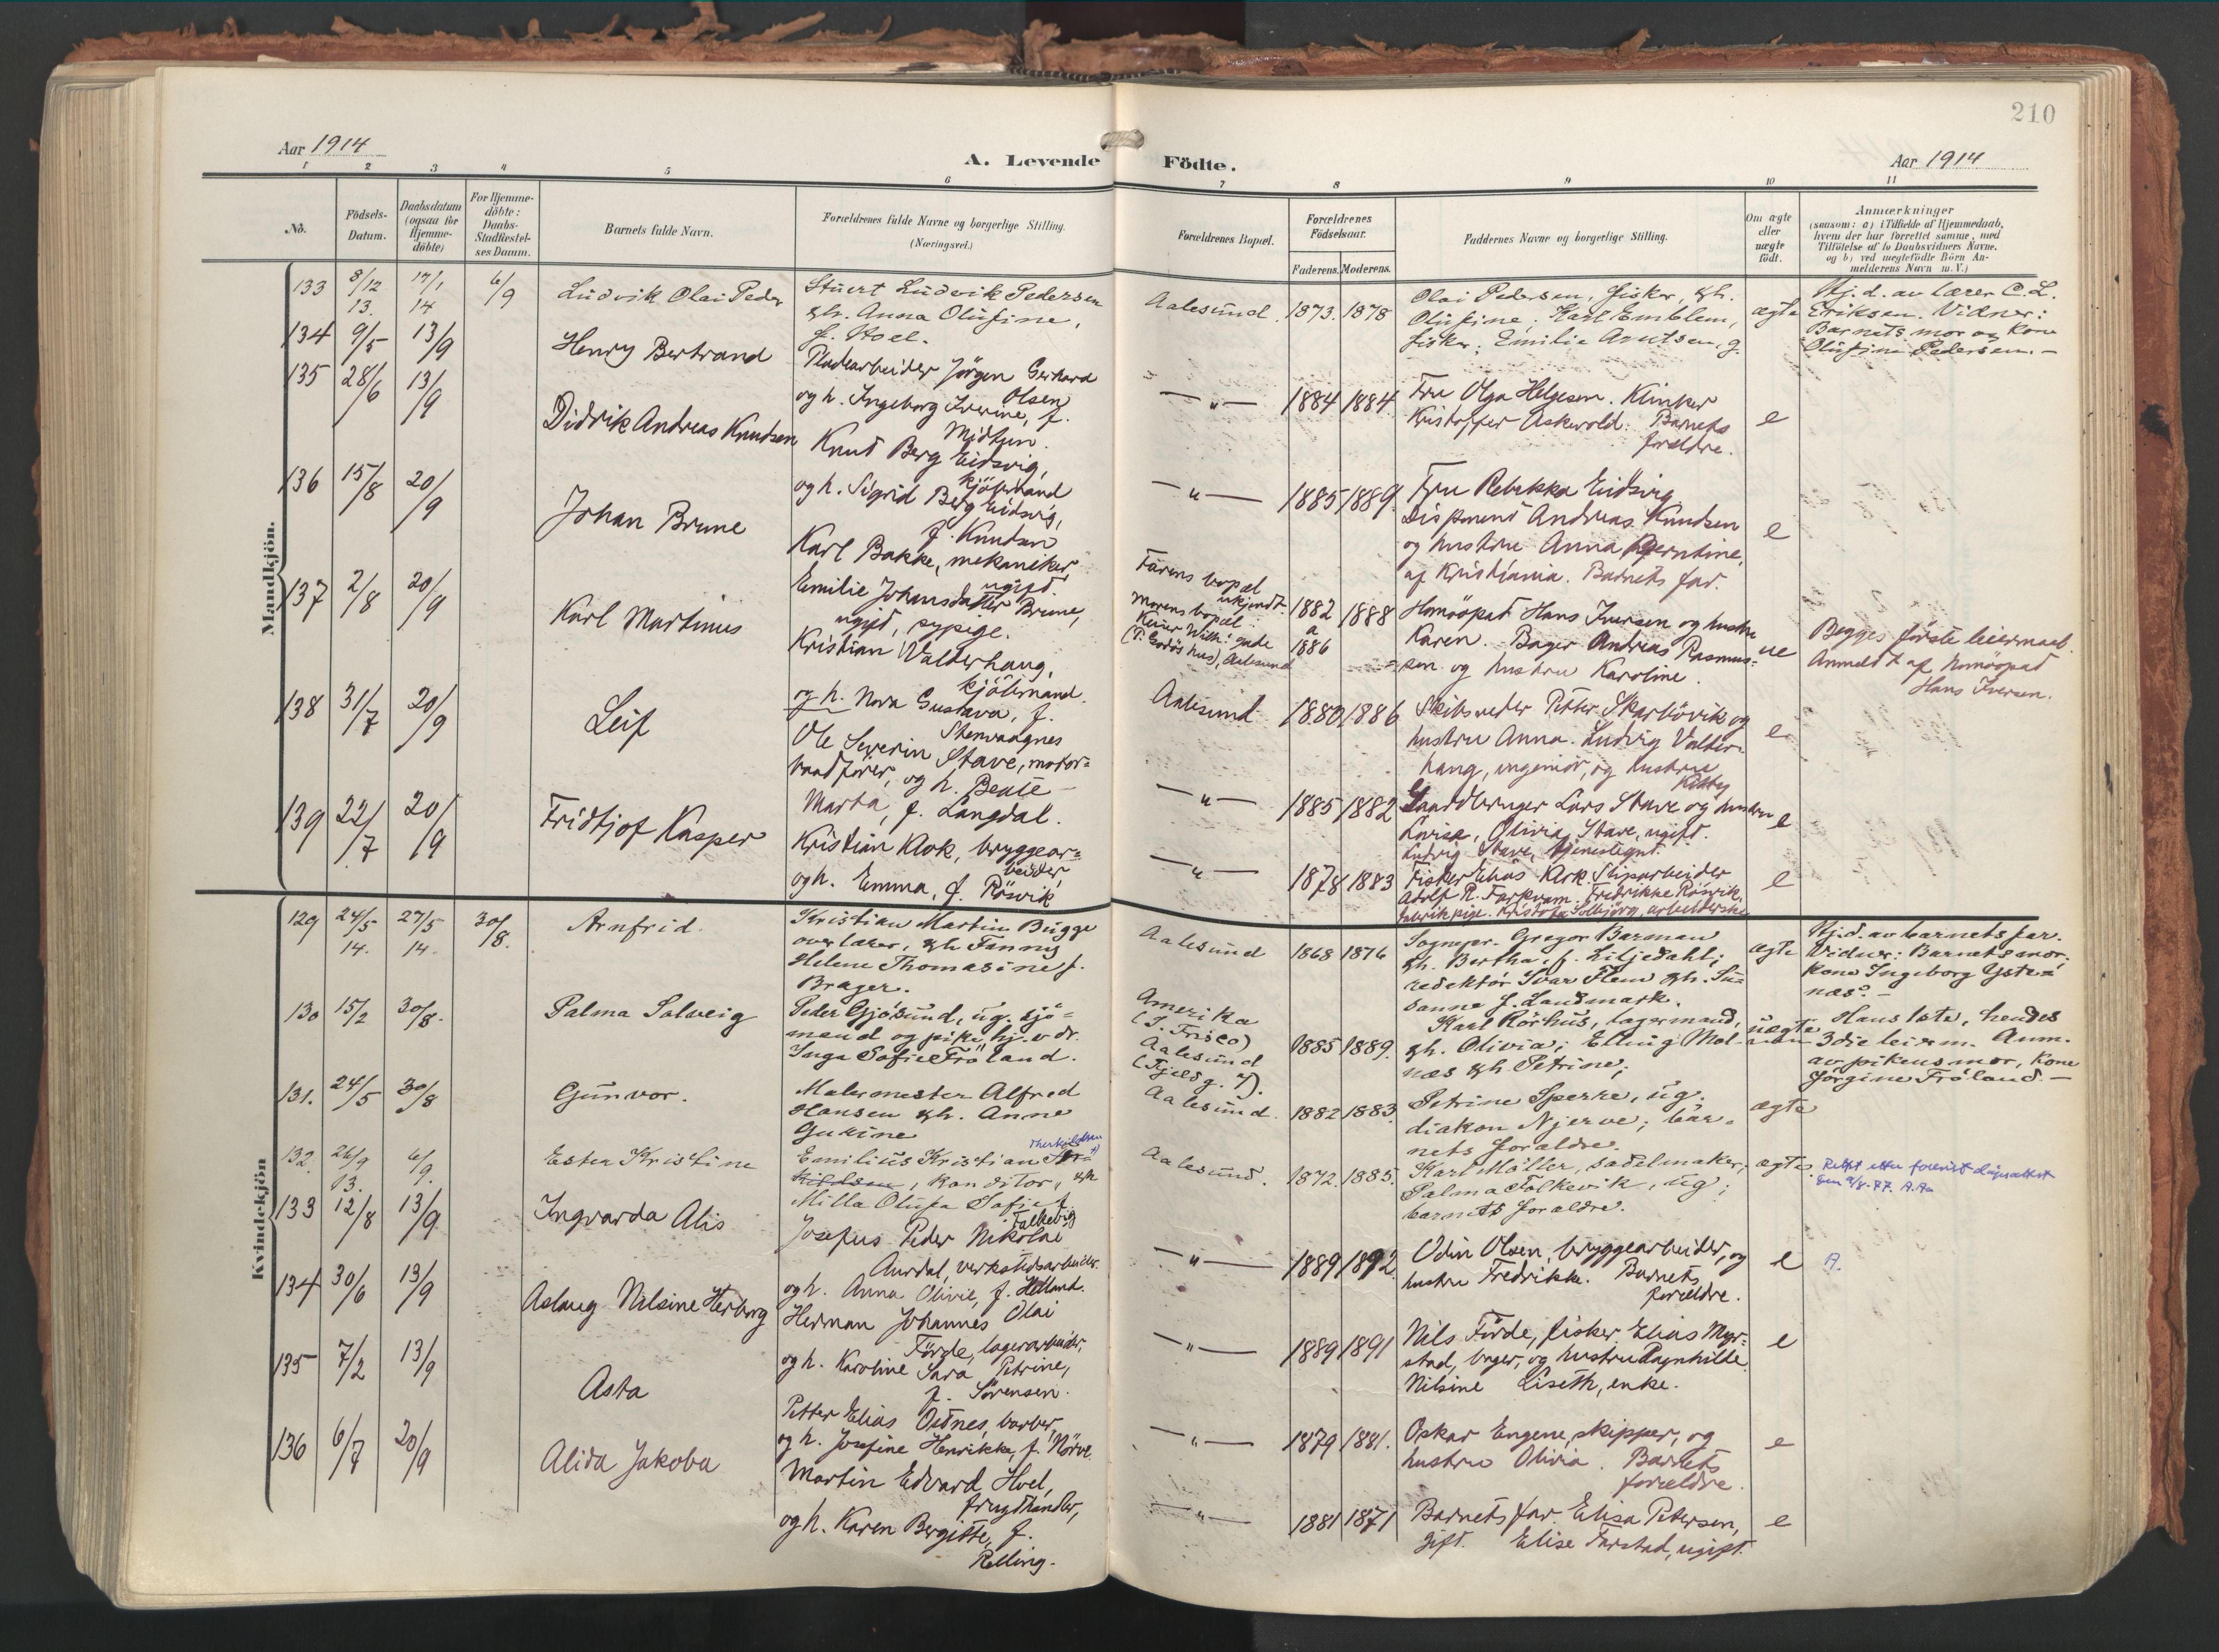 210
Aar 1914
A. Levende Födte.
Aar 1914
1 2 3 4 5 6 7 8 9 10 11
No.
Födsels-
Datum.
Daabsdatum
(ogsaa for
Hjemme-
döbte)
For Hjemme-
döbte:
Daabs-
Stadfæstel-
ses Datum.
Barnets fulde Navn.
Forældrenes fulde Navne og borgerlige Stilling.
(Næringsvei.)
Forældrenes Bopæl.
Forældrenes
Födselsaar.
Faderens. Moderens.
Faddernes Navne og borgerlige Stilling.
Om ægte
eller
uægte
födt.
Anmærkninger
(saasom: a) i Tilfælde af Hjemmedaab,
hvem der har forrettet samme, med
Tilföielse af to Daabsvidners Navne,
og b) ved uægtefödte Börn An-
melderens Navn m. V.)
Mandkjön.
133 8/12 13. 17/1 14 6/9
Ludvik Olai Peder
Stuert Ludvik Pedersen
& h. Anna Olufine,
f. Hoel.
Aalesund 1873. 1878
Olai Pedersen, fisker, & h.
Olufine. Karl Emblem,
fisker. Emilie Arntsen, g.
ægte
Hj. d. av lærer C. L.
Eriksen. Vidner:
Barnets mor og kone
Olufine Pedersen. –
134 9/5 13/9
Henry Bertrand
Pladearbeider Jörgen Gerhard
Olsen
og h. Ingeborg Iverine, f.
Midtun.
— " — 1884 1884.
Fru Olga Helgesen. Klinker
Kristoffer Askevold. Barnets
forældre.
e
135 28/6 13/9
Didrik Andreas Knudsen
Knud Berg Eidsvig,
kjöbmand
og h. Sigrid Berg Eidsvig,
f. Knudsen
— " — 1885 1889.
Fru Rebekka Eidsvig.
Disponent Andreas Knudsen
og hustru Anna Berntine,
af Kristiania. Barnets far.
e
136 15/8 20/9
Johan Brune
Karl Bakke, mekaniker,
ugift.
Emilie Johansdatter Brune,
ugift, sypige.
Farens bopæl
ukjendt.
Morens bopæl:
Keiser Wilh: gade
(P. Godös hus), Aalesund
1882 a 1886 1888
Homöopat Hans Iversen og hustru
Karen. Bager Andreas Rasmus-
sen og hustru Karoline.
ue
Begges förste leiermaal.
Anmeldt af homöopat
Hans Iversen.
137 2/8 20/9
Karl Martinus
Kristian Valderhaug,
kjöbmand.
og h. Nora Gustava, f.
Stenvaagnes
Aalesund 1880 1886
Skibsreder Petter Skarbövik og
hustru Anna. Ludvig Valder-
haug, ingeniör, og hustru
Kitty
e
138 31/7 20/9
Leif
Ole Severin Stave, motor-
baadförer, og h. Beate
Marta, f. Langdal.
— " — 1885 1882
Gaardbruger Lars Stave og hustru
Lovise, Olivia Stave, ugift.
Ludvig Stave, tjenestegut.
e
139 22/7 20/9
Fridtjof Kasper
Kristian Klok, bryggear-
beider,
og h. Emma, f. Rösvik
— " — 1878 1883
Fisker Elias Klok. Sliparbeider
Adolf R. Farkvam. Fredrikke Rösvik,
fabrikpige. Kristofa Solbjörg, arbeiderske
e
Kvindekjön
129 24/5 14. 27/5 14. 30/8.
Arnfrid.
Kristian Martin Bugge
overlærer, & h. Fanny
Helene Thomasine f.
Brager.
Aalesund 1868 1876
Sognepr. Gregor Barman
& h. Bertha, f. Liljedahl;
redaktör Ivar Flem & h. Su-
sanne f. Landmark.
ægte
Hj. d. av barnets far.
Vidner: Barnets mor,
kone Ingeborg Ystenæs.
130 15/2 30/8.
Palma Solveig
Peder Gjösund, ug. sjö-
mand og pike hj. v. dr.
Inga Sofie Fröland.
Amerika
(S. Frisco)
Aalesund
(Fjeldg. 7).
1885 1889.
Karl Rörhus, lagermand,
& h. Olivia; Elling Mol-
næs & h. Petrine;
uægte
Hans 1ste, hendes
3die leierm. Anm.
av pikens mor, kone
Jörgine Fröland. –
131. 24/5 30/8
Gunvor.
Malermester Alfred
Hansen & h. Anne
Gurine
Aalesund. 1882 1883.
Petrine Sperre, ug.;
diakon Njerve; bar-
nets foraldre.
ægte
132. 26/9 13. 6/9.
Ester Kristine
Emilius Kristian
Therkildsen
, konditor, & h.
Milla Olufa Sofie f.
Falkevig
Aalesund. 1872. 1885.
Karl Möller, sadelmaker,
Palma Falkevik, ug;
barnets foraldre.
ægte
133 12/8 13/9
Ingvarda Alis
Josefus Peder Nikolai
Aurdal, verkstedsarbeider.
og h. Anna Olivie, f. Helland.
— " — 1889 1892.
Odin Olsen, bryggearbeider, og
hustru Fredrikke. Barnets
forældre.
e
134 30/6 13/9
Aslaug Nilsine Herborg
Herman Johannes Olai
Förde, lagerarbeider,
og h. Karoline Sara Petrine,
f. Sörensen.
— " — 1889 1891
Nils Förde, fisker. Elias Myr-
stad, bager, og hustru Ragnhilde.
Nilsine Liseth, enke.
e
135 7/2 13/9
Asta
Petter Elias Osnes, barber,
og h. Josefine Henrikke, f. Nörve.
— " — 1879 1881.
Oskar Engene, skipper, og
hustru Olivia. Barnets
forældre.
e
136 6/7 20/9
Alida Jakoba
Martin Edvard Hoel,
frugthandler,
og h. Karen Bergitte, f.
Relling.
— " — 1881 1871
Barnets far. Elisa Petersen,
gift. Elise Farstad, ugift.
e